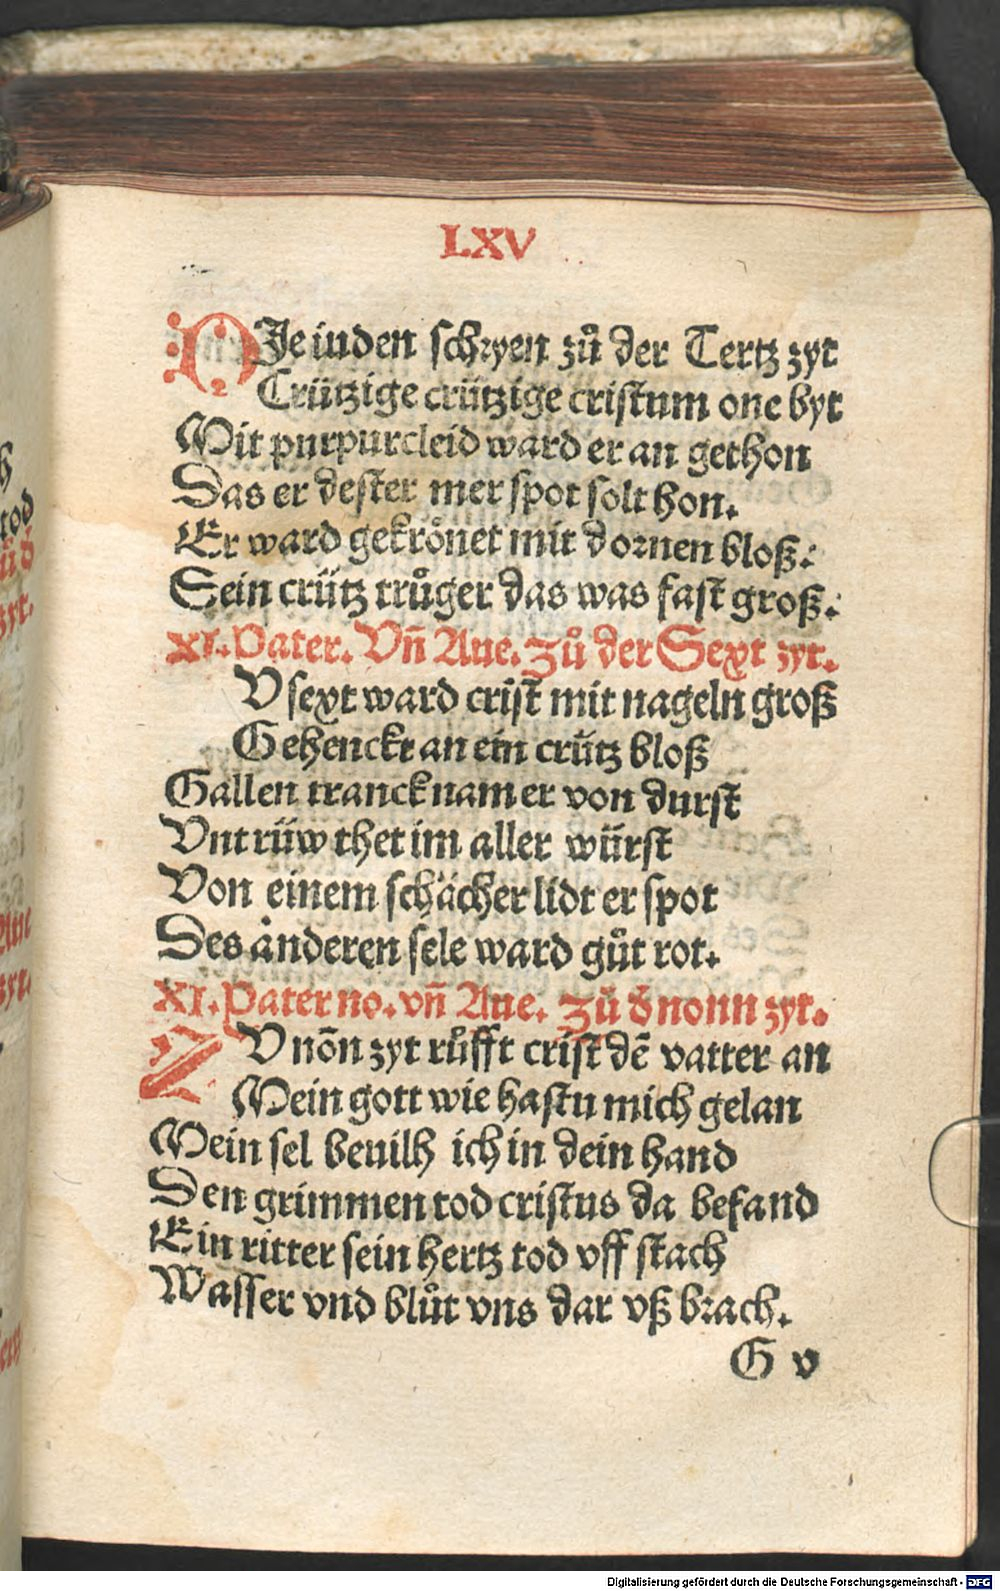 LXV
DJe iuden schryen zů der Tertz zyt
Crützige crützige cristum one byt
Mit purpurcleid ward er an gethon
Das er dester mer spot solt hon.
Er ward gekrönet mit dornen bloß:
Sein crütz trůger das was fast groß.
XI. Pater. Vñ Aue. Zů der Sext zyt.
V sext ward crist mit nageln groß
Gehenckt an ein crütz bloß
Gallen tranck nam er von durst
Vntrüw thet im aller würst
Von einem schächer lidt er spot
Des anderen sele ward gůt rot.
XI. Pater no. vñ Aue. Zů d̄ nonn zyt.
ZV nōn zyt růfft crist dē vatter an
Mein gott wie hastu mich gelan
Mein sel beuilh ich in dein hand
Den grimmen tod cristus da befand
Ein ritter sein hertz tod vff stach
Wasser vnd blůt vns dar vß brach.
G v
h
tod
zyt.
Aue
zyt.
Digitalisierung gefördert durch die Deutsche Forschungsgemeinschaft - DFG